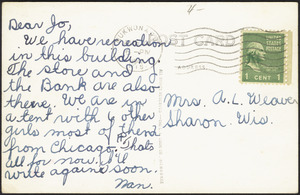 Dear Jo,
We have recreation
in this building.
The store and
the Bank are also
there. We are in
a tent with 6 other
girls most of them
from Chicago. That's
all for now. I'll
write again soon.
Nan.
POST CARD
ADDRESS
UNITED STATES
POSTAGE
1 CENT 1
Mrs. A. L. Weaver
Sharon, Wis.